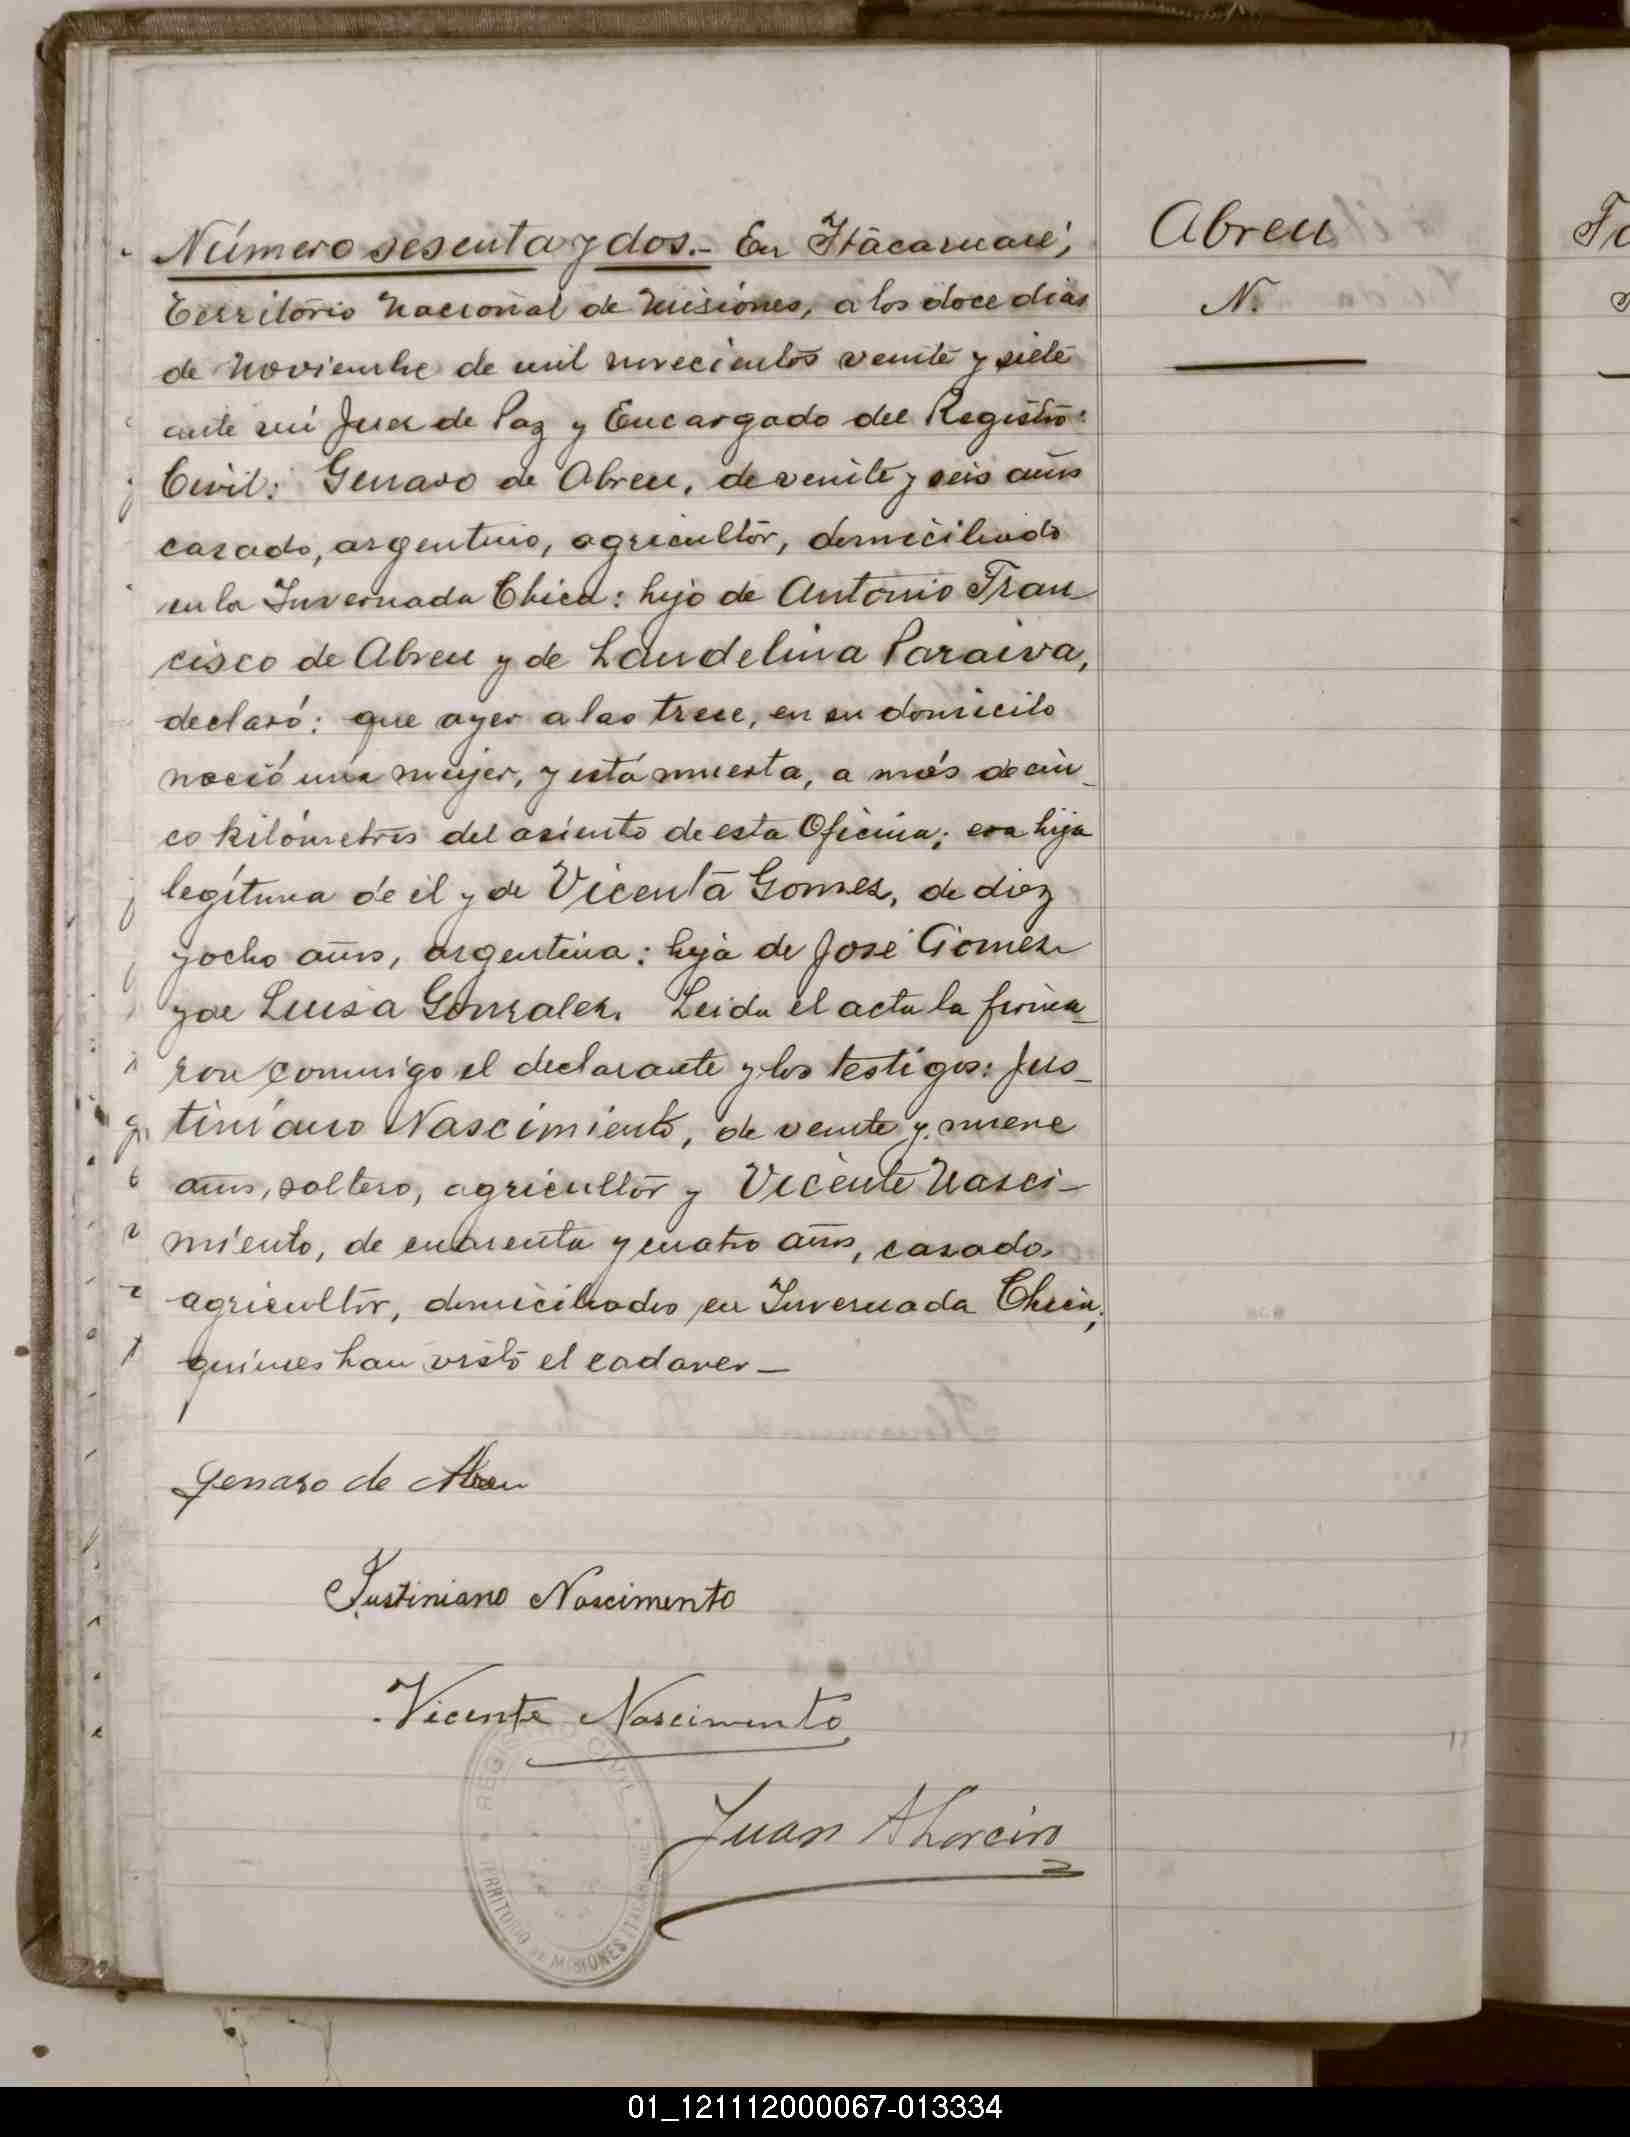 Número sesenta y dos.- En Itacaruaré,
Territorio Nacional de Misiones, a los doce dias
de Noviembre de mil novecientos veinte y siete
ante mi Juez de Paz y Encargado del Registro
Civil: Genaro de Abreu, de veinte y seis años
casado, argentino, agricultor, domiciliado
en la Invernada Chica: hijo de Antonio Fran-
cisco de Abreu y de Laudelina Paraiva,
declaró: que ayer a las trece, en su domicilo
nació una mujer, y está muerta, a más de cin-
co kilómetros del asiento de esta Oficina; era hija
legítima de él y de Vicenta Gomez, de diez
y ocho años, argentina: hija de José Gomez
y de Luisa Gonzalez. Leida el acta la firma-
ron conmigo el declarante y los testigos: Jus-
tiniano Nascimiento, de veinte y nueve
años, soltero, agricultor y Vicente Nasci-
miento, de cuarenta y cuatro años, casado,
agricultor, domiciliados en Invernada Chica;
quienes han visto el cadaver-
Genaro de Abreu
Justiniano Nascimento
Vicente Nascimento
Juan A Loreiro
REGISTRO CIVIL
TERRITORIO DE MISIONES ITACARUARE
Abreu
N.
01_121112000067-013334